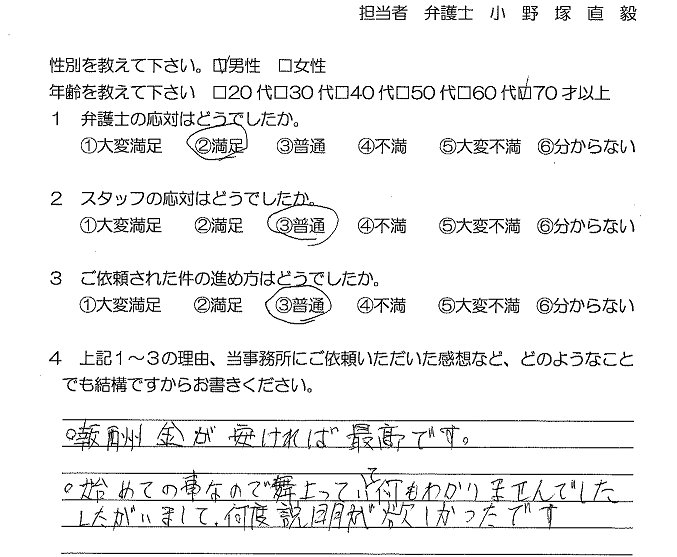 担当者 弁護士 小野塚直毅
性別を教えて下さい。☑男性 □女性
年齢を教えて下さい □20代□30代□40代□50代□60代☑70才以上
1 弁護士の応対はどうでしたか。
①大変満足 ②満足 ③普通 ④不満 ⑤大変不満 ⑥分からない
2 スタッフの応対はどうでしたか。
①大変満足 ②満足 ③普通 ④不満 ⑤大変不満 ⑥分からない
3 ご依頼された件の進め方はどうでしたか。
①大変満足 ②満足 ③普通 ④不満 ⑤大変不満 ⑥分からない
4 上記1～3の理由、当事務所にご依頼いただいた感想など、どのようなこと
でも結構ですからお書きください。
○報酬金が安ければ最高です。
○始めての事なので舞上っていて何もわかりませんでした
したがいまして、何度説明が欲しかったです